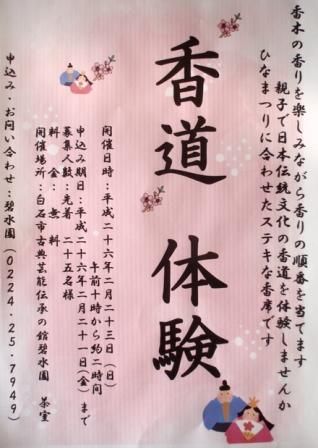 香木の香りを楽しみながら香りの順番を当てます
親子で日本伝統文化の香道を体験しませんか
ひなまつりに合わせたステキな香席です
香道 体験
開催日時：平成二十六年二月二十三日（日）
午前十時から約二時間
申込み期日：平成二十六年二月二十一日（金）まで
募集人数：先着 二十五名様
料金：無料
開催場所：白石市古典芸能伝承の館碧水園 茶室
申込み・お問い合わせ：碧水園（0224-25-7949）